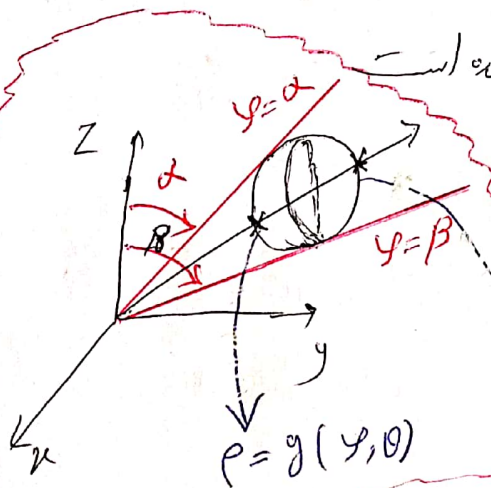 φ=α
Z
α
β
φ=β
y
x
ρ=g(φ,θ)